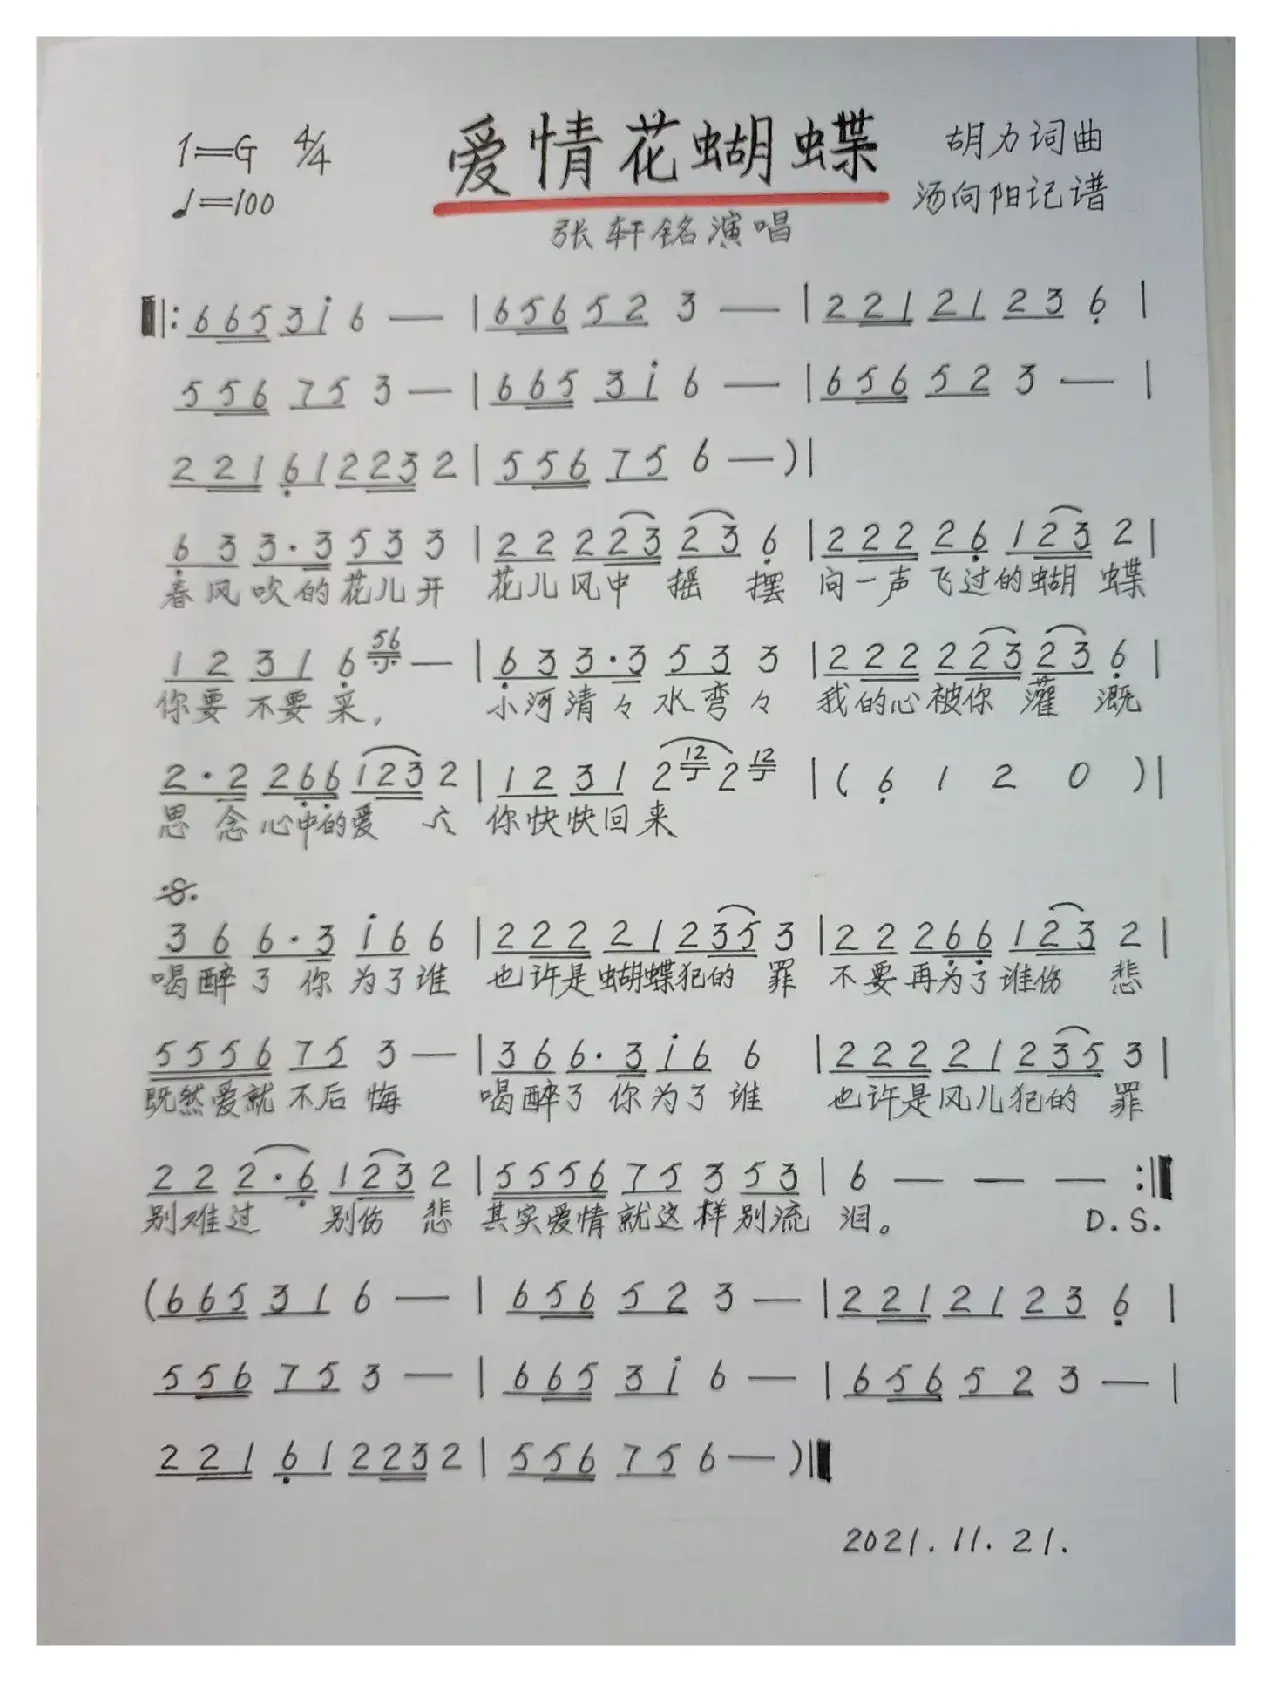 1=G 4/4
爱情花蝴蝶
胡力词曲
♩=100
汤向阳记谱
张轩铭演唱
‖: 6 6 5 3 i 6 — | 6 5 6 5 2 3 — | 2 2 1 2 1 2 3 6̣ |
5 5 6 7 5 3 — | 6 6 5 3 i 6 — | 6 5 6 5 2 3 — |
2 2 1 6̣ 1 2 2 3 2 | 5 5 6 7 5 6 — ) |
6̣ 3 3 · 3 5 3 3 | 2 2 2 2 3 2 3 6̣ | 2 2 2 2 6̣ 1 2 3 2 |
春风吹的花儿开 花儿风中摇摆 问一声飞过的蝴蝶
1 2 3 1 6̣ 56 — | 6̣ 3 3 · 3 5 3 3 | 2 2 2 2 2 3 2 3 6̣ |
你要不要采, 小河清々水弯々 我的心被你灌溉
2 · 2 2 6̣ 6̣ 1 2 3 2 | 1 2 3 1 2 12 2 12 | ( 6̣ 1 2 0 ) |
思念心中的爱 你快快回来
3 6 6 · 3 i 6 6 | 2 2 2 2 1 2 3 5 3 | 2 2 2 6̣ 6̣ 1 2 3 2 |
喝醉了你为了谁 也许是蝴蝶犯的罪 不要再为了谁伤悲
5 5 5 6 7 5 3 — | 3 6 6 · 3 i 6 6 | 2 2 2 2 1 2 3 5 3 |
既然爱就不后悔 喝醉了你为了谁 也许是风儿犯的罪
2 2 2 · 6̣ 1 2 3 2 | 5 5 5 6 7 5 3 5 3 | 6 — — — :‖
别难过别伤悲 其实爱情就这样别流泪。 D.S.
( 6 6 5 3 1 6 — | 6 5 6 5 2 3 — | 2 2 1 2 1 2 3 6̣ |
5 5 6 7 5 3 — | 6 6 5 3 i 6 — | 6 5 6 5 2 3 — |
2 2 1 6̣ 1 2 2 3 2 | 5 5 6 7 5 6 — ) ‖
2021.11.21.